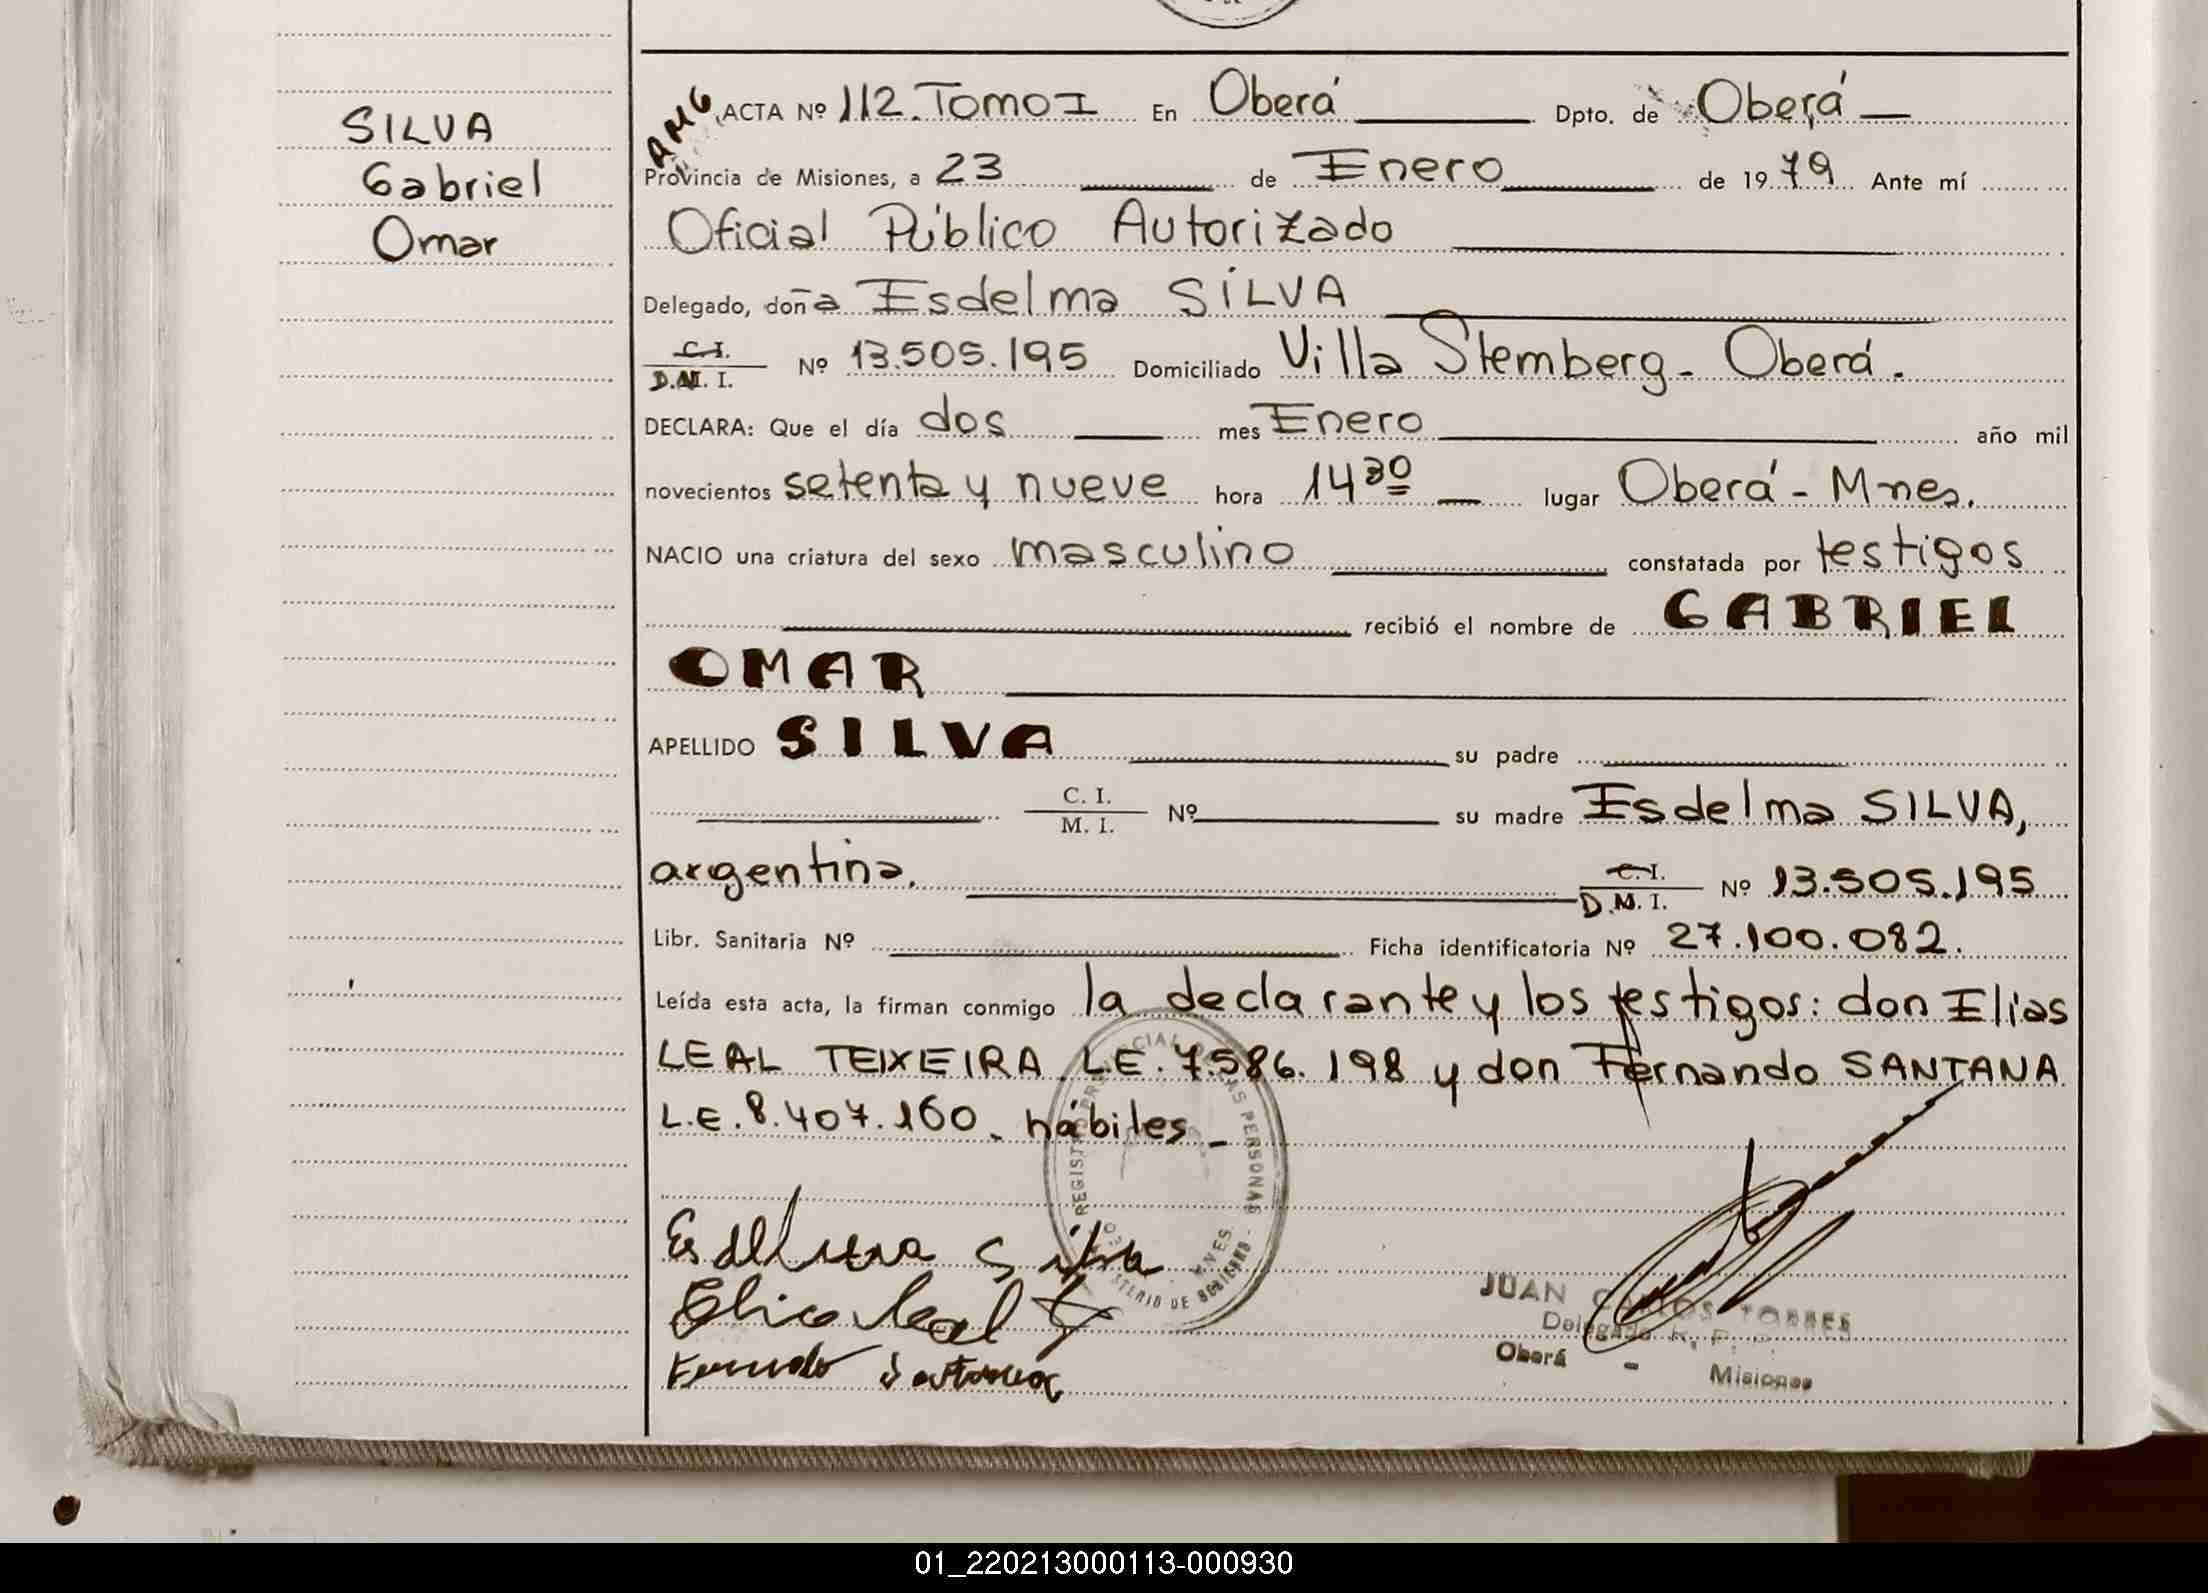 SILVA
Gabriel
Omar
AMG
ACTA Nº 112. Tomo I En Oberá Dpto. de Oberá
Provincia de Misiones, a 23 de Enero de 1979 Ante mí
Oficial Público Autorizado
Delegado, doña Esdelma SILVA
C.I.
D.M.I. Nº 13.505.195 Domiciliado Villa Stemberg - Oberá.
DECLARA: Que el día dos mes Enero año mil
novecientos setenta y nueve hora 14 30 lugar Oberá - Mnes.
NACIO una criatura del sexo masculino constatada por testigos
recibió el nombre de GABRIEL
OMAR
APELLIDO SILVA su padre
C. I.
M. I. Nº su madre Esdelma SILVA,
argentina. C.I.
D.M.I. Nº 13.505.195
Libr. Sanitaria Nº Ficha identificatoria Nº 27.100.082.
Leída esta acta, la firman conmigo la declarante y los testigos: don Elias
LEAL TEIXEIRA. L.E. 7.586.198 y don Fernando SANTANA
L.E. 8.407.160. hábiles -
REGISTRO PROVINCIAL DE LAS PERSONAS
MINISTERIO DE GOBIERNO - MNES.
Esdelma Silva
Elias Leal T
Fernando Santana
JUAN CARLOS TORRES
Delegado R. P. P.
Oberá - Misiones
01_220213000113-000930